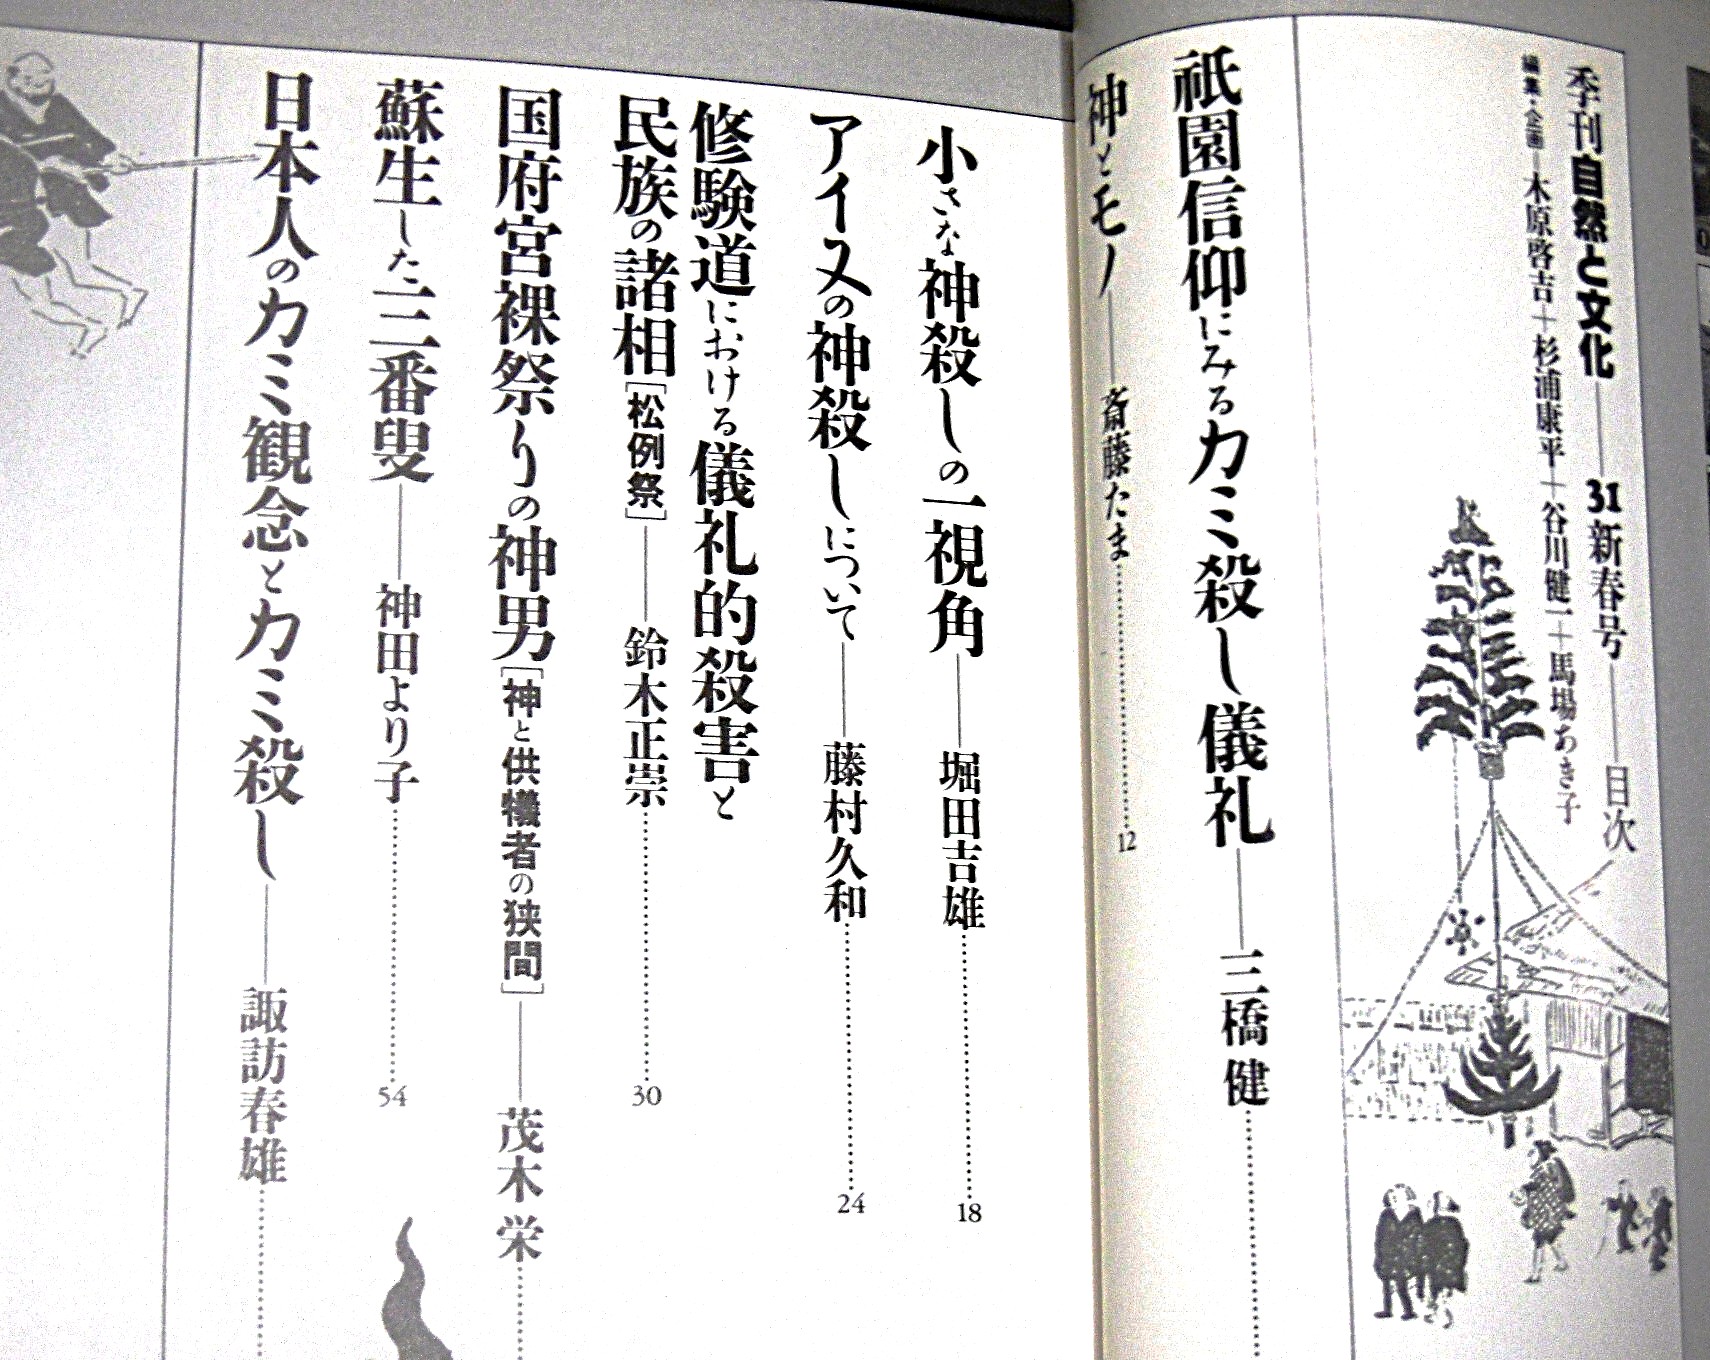 季刊自然と文化──31新春号──目次
編集・企画─木原啓吉＋杉浦康平＋谷川健一＋馬場あき子
祇園信仰にみるカミ殺し儀礼──三橋 健
神とモノ──斎藤たま 12
小さな神殺しの一視角──堀田吉雄 18
アイヌの神殺しについて──藤村久和 24
修験道における儀礼的殺害と
民族の諸相[松例祭]──鈴木正崇 30
国府宮裸祭りの神男[神と供犠者の狭間]──茂木 栄
蘇生した三番叟──神田より子 54
日本人のカミ観念とカミ殺し──諏訪春雄